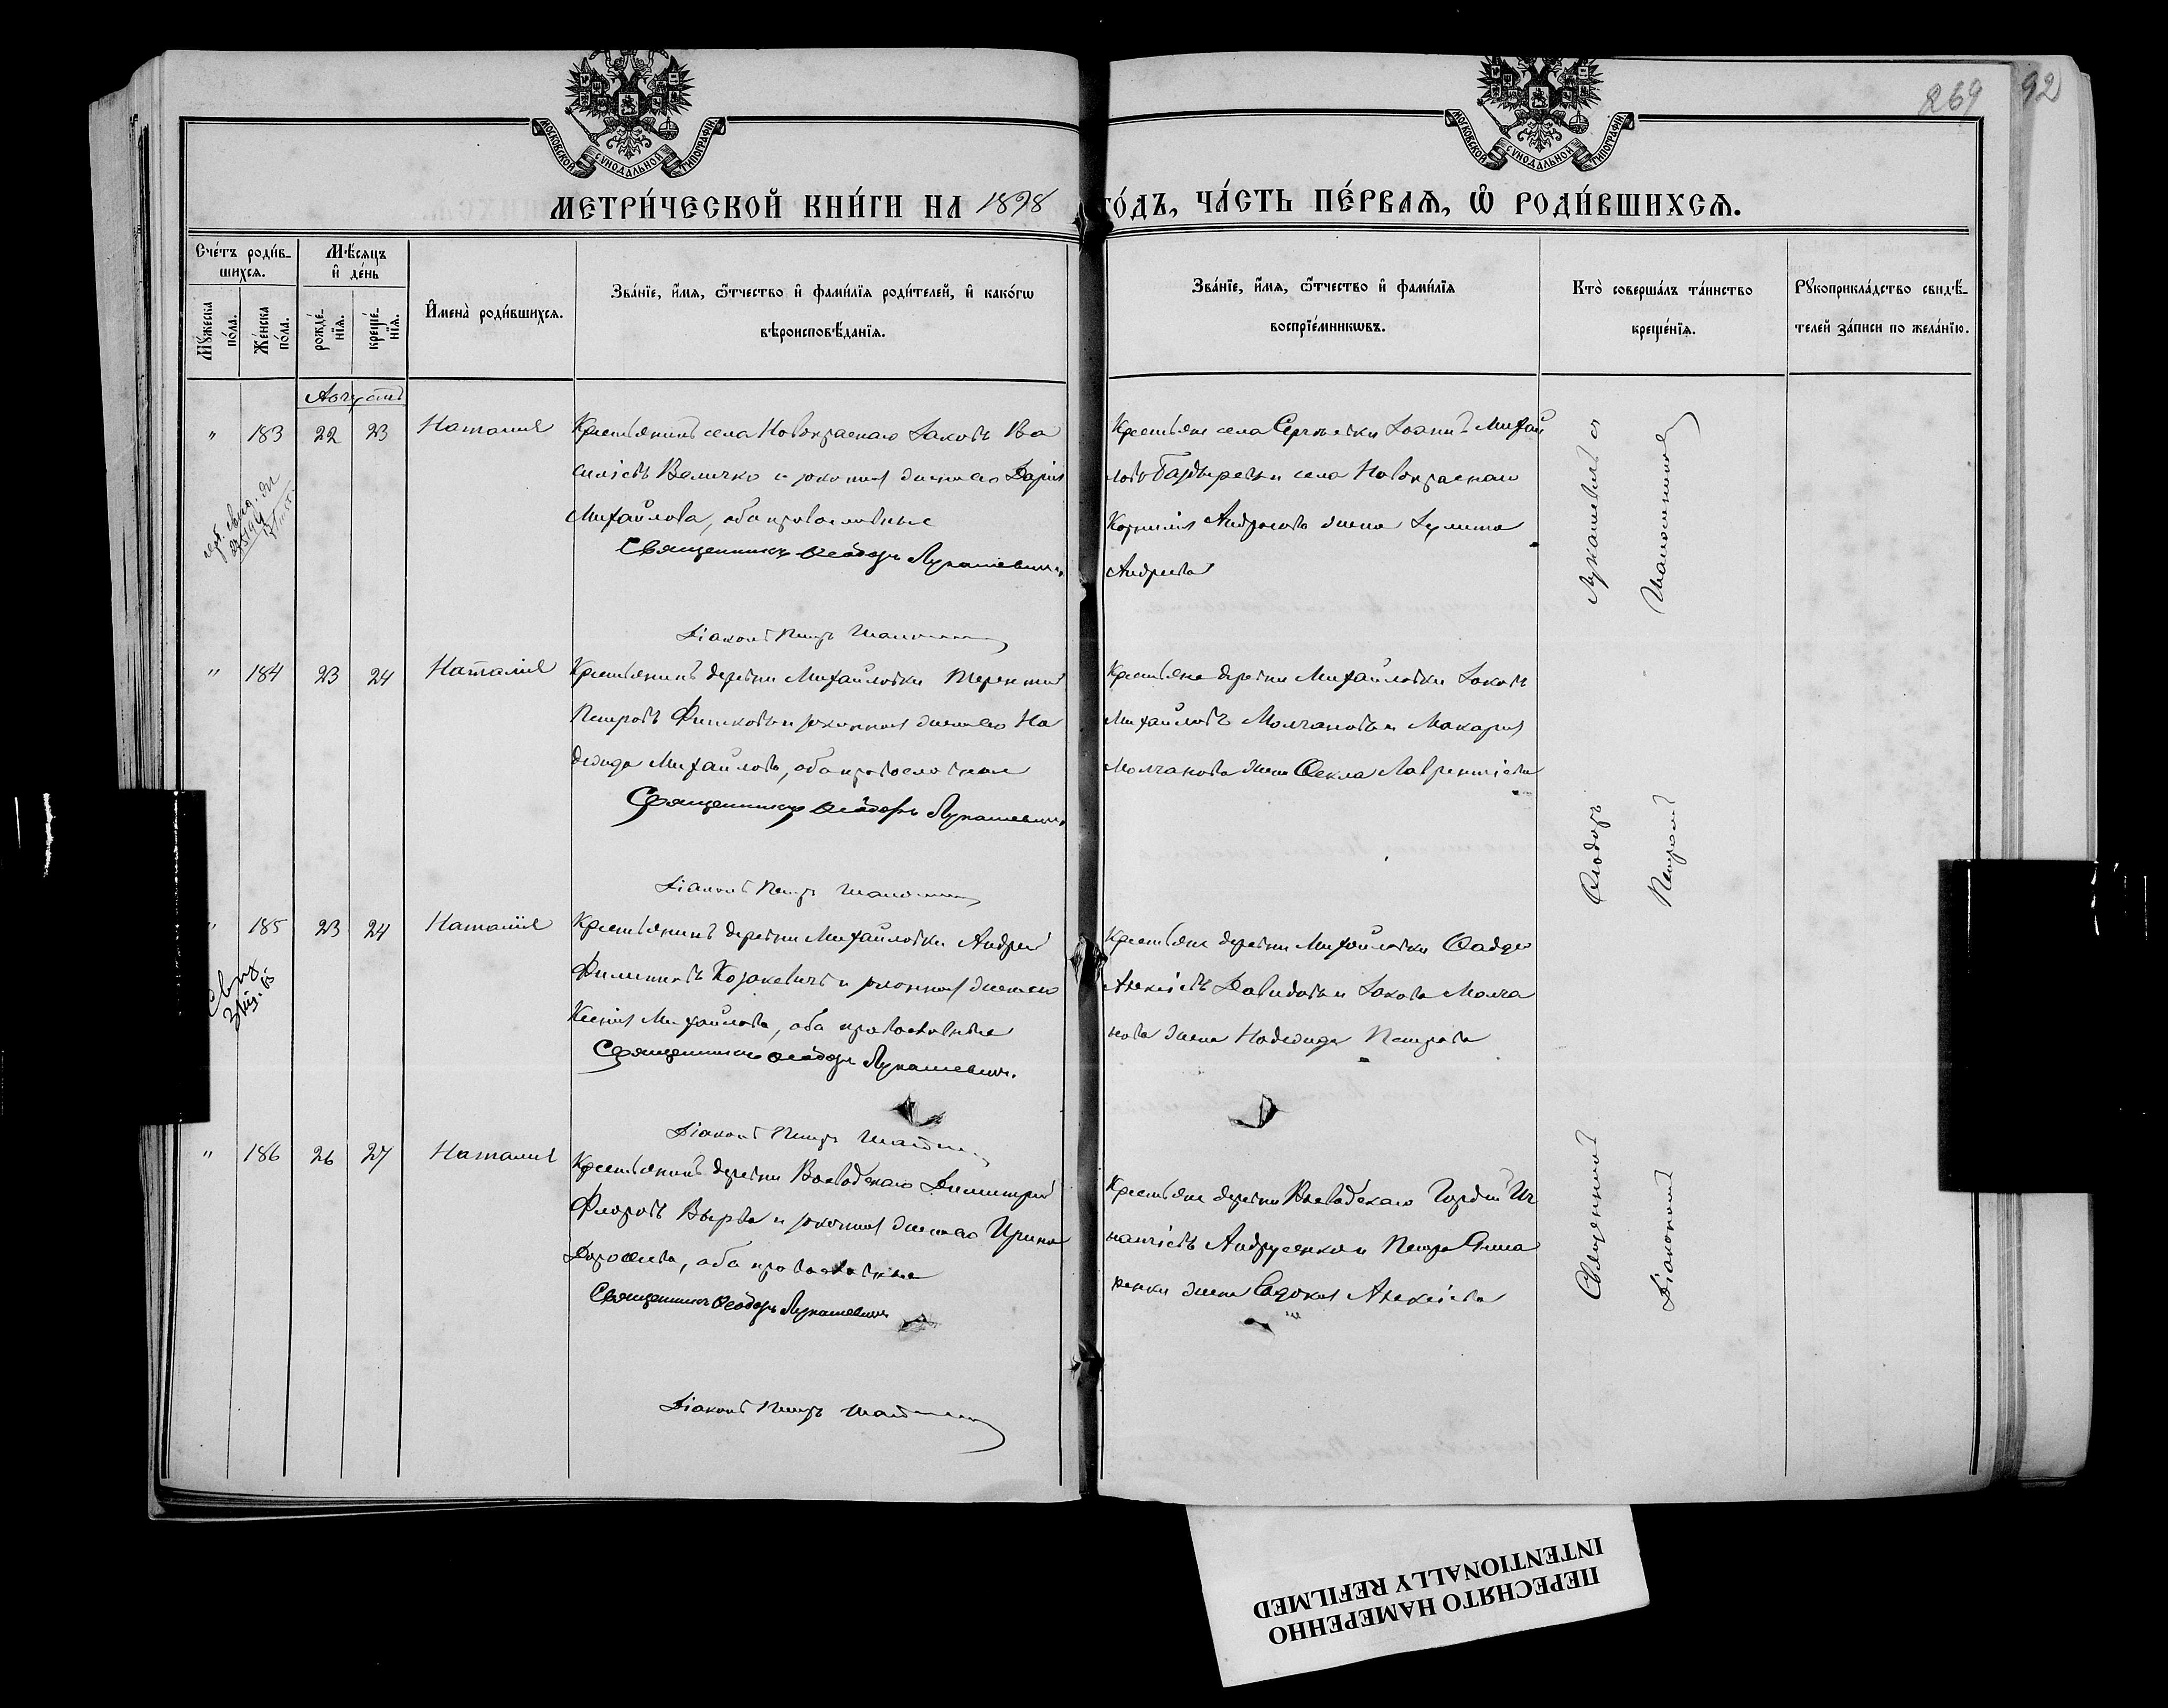 269
92
МОСКОВСКОЙ СѴНОДАЛЬНОЙ ТИПОГРАФІИ
МОСКОВСКОЙ СѴНОДАЛЬНОЙ ТИПОГРАФІИ
МЕТРИ́ЧЕСКОЙ КНИ́ГИ НА 1898 ГО́ДЪ, ЧА́СТЬ ПЕ́РВАѦ, Ѡ҆ РОДИ́ВШИХСѦ.
Сче́тъ роди́в-
шихсѧ.
Мꙋ́жеска по́ла.
Же́нска по́ла.
Мѣ́сѧцъ
и҆ де́нь
рожде́-
нїѧ.
креще́-
нїѧ.
И҆мена̀ роди́вшихсѧ.
Зва́нїе, и҆́мѧ, ѻ҆́тчество и҆ фами́лїѧ роди́телей, и҆ како́гѡ
вѣроисповѣ́данїѧ.
Зва́нїе, и҆́мѧ, ѻ҆́тчество и҆ фами́лїѧ
воспрїе́мникѡвъ.
Кто̀ соверша́лъ та́инство
креще́нїѧ.
Рꙋкоприкла́дство свидѣ́-
телей за́писи по жела́нїю.
Августъ
" 183 22 23 Наталія
Крестьянинъ села Новокраснаго Іаковъ Ва
силіевъ Величко и законная жена его Дарія
Михайлова, оба православные
Священникъ Ѳеодоръ Лукашевичъ.
Діаконъ Петръ
Крестьяне села Сергѣевки Іоаннъ Михаи
ловъ и села Новокраснаго
Корнилія Андреева жена Іулитта
Андреева
" 184 23 24 Наталія
Крестьянинъ деревни Михайловки Терентій
Петровъ и законная жена его На
дежда Михайлова, оба православные
Священникъ Ѳеодоръ Лукашевичъ.
Діаконъ Петръ
Крестьяне деревни Михайловки Іаковъ
Михайловъ Молчановъ и Макарія
Молчанова жена Ѳекла Лаврентіева
" 185 23 24 Наталія
Крестьянинъ деревни Михайловки Андрей
Филипповъ Козакевичъ и законная жена его
Ксенія Михайлова, оба православные
Священникъ Ѳеодоръ Лукашевичъ.
Діаконъ Петръ
Крестьяне деревни Михайловки Ѳаддей
Алексіевъ Давидовъ и Іакова Молча
нова жена Надежда Петрова
" 186 26 27 Наталія
Крестьянинъ деревни Воеводскаго Димитрій
Флоровъ Вырва и законная жена его Ирина
Дороѳеева, оба православные
Священникъ Ѳеодоръ Лукашевичъ
Діаконъ Петръ
Крестьяне деревни Воеводскаго Гордій Иг
натіевъ Андрусенко и Петра
жена Евдокія Алексіева
Священникъ Ѳеодоръ Лукашевичъ съ
Діакономъ Петромъ
ПЕРЕСНЯТО НАМЕРЕННО
INTENTIONALLY REFILMED